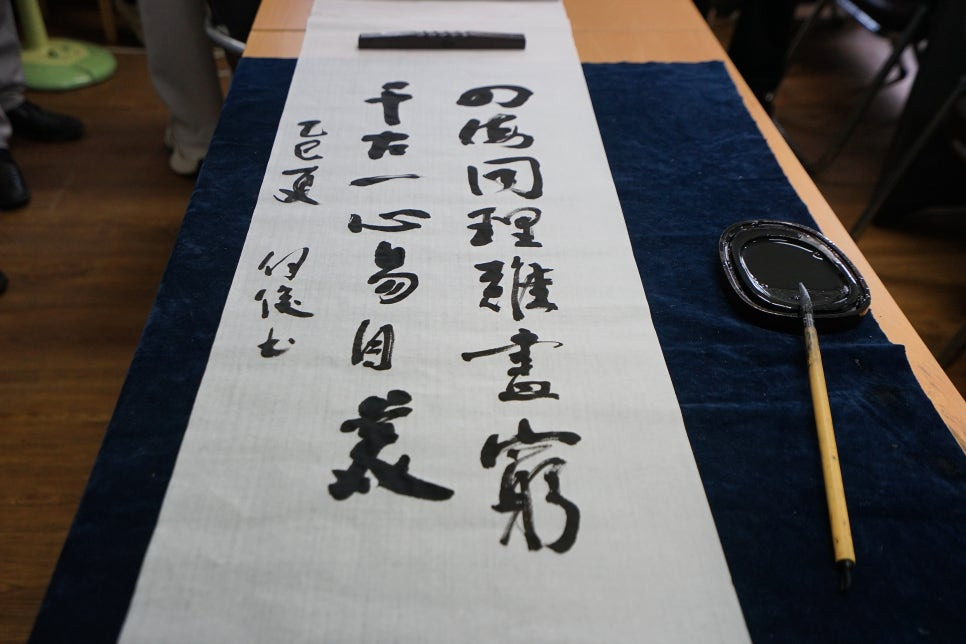 四海同理難盡窮
千古一心易目美
乙巳夏 俊书